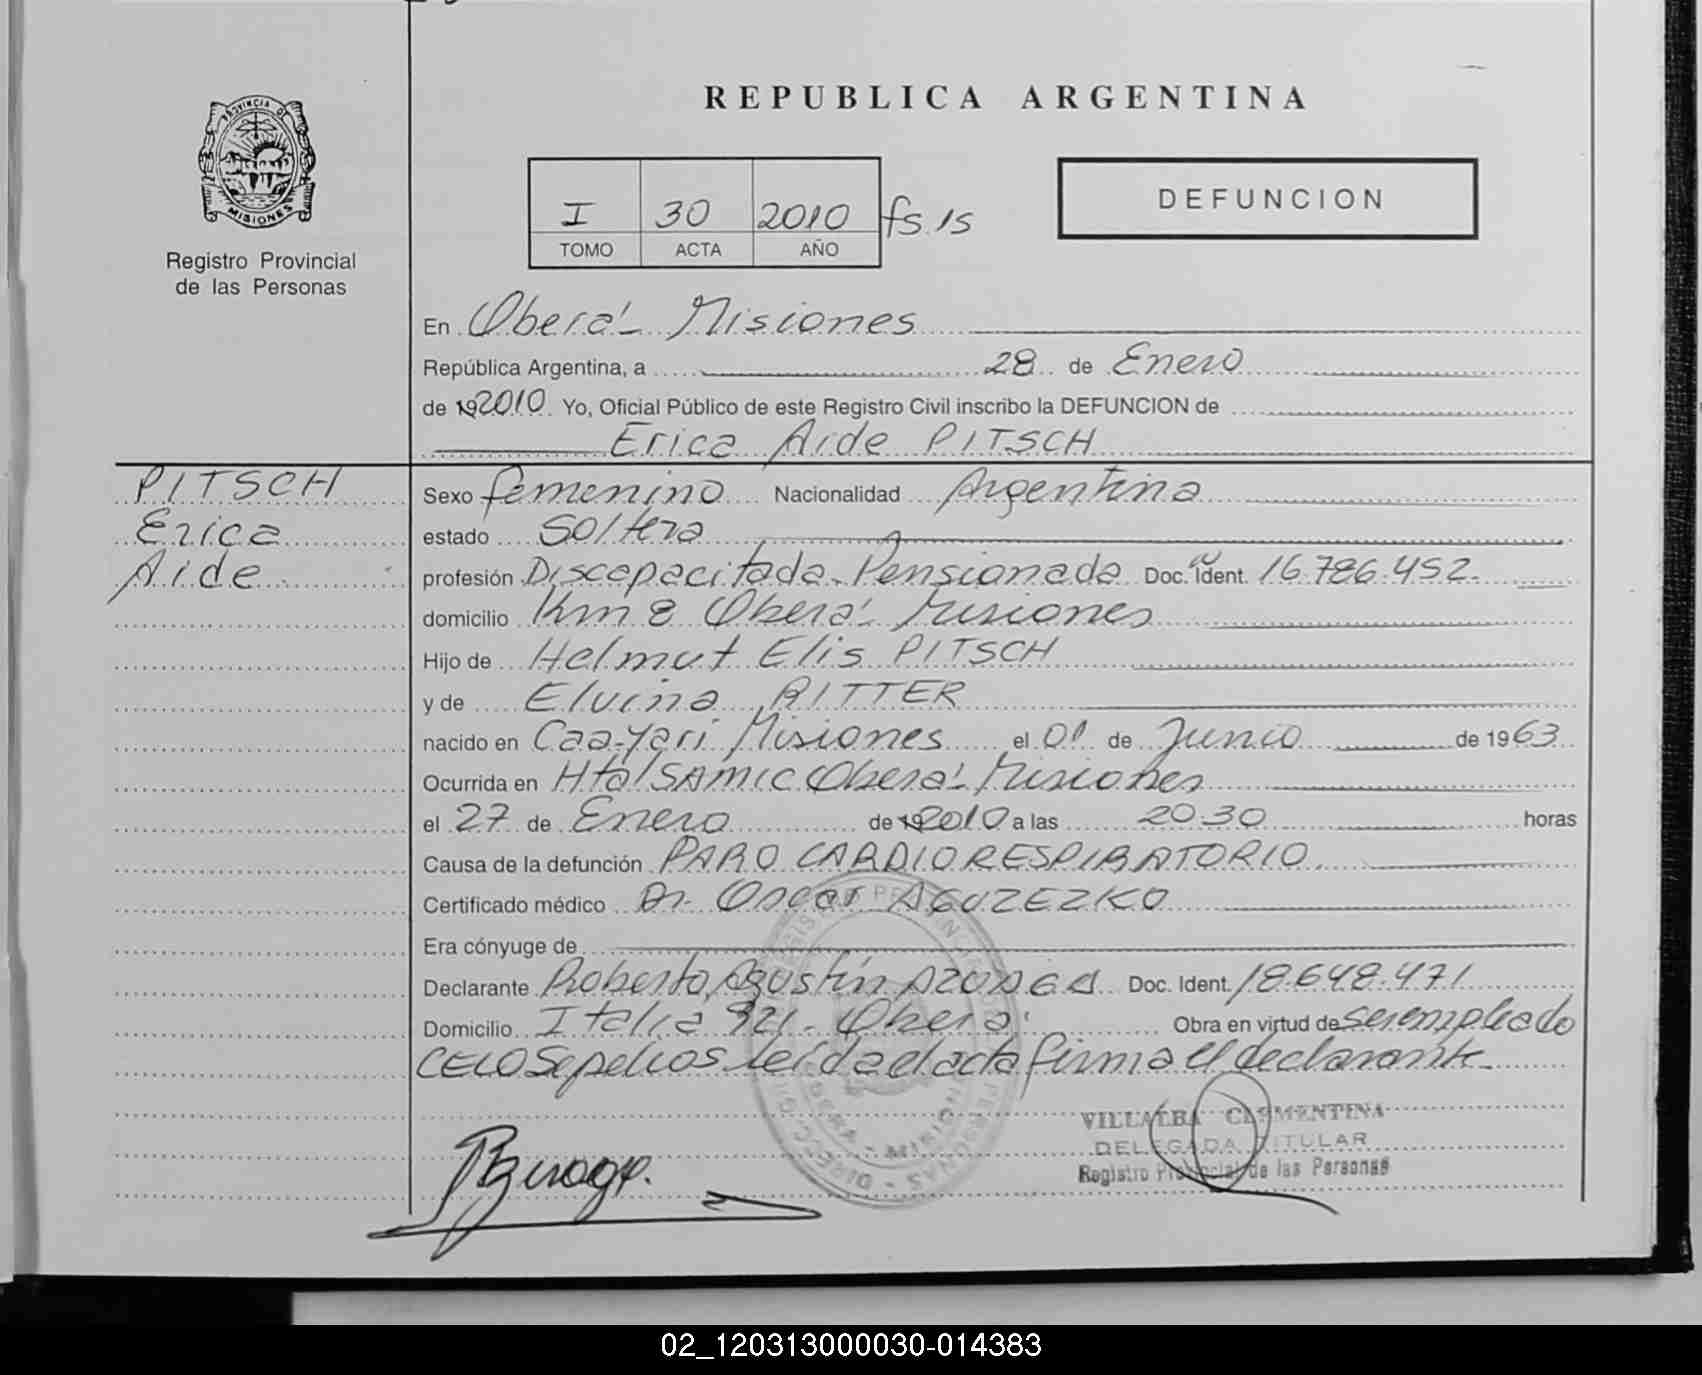 REPUBLICA ARGENTINA
PROVINCIA DE
MISIONES
Registro Provincial
de las Personas
I 30 2010 fs.15
TOMO ACTA AÑO
DEFUNCION
En Oberá - Misiones
República Argentina, a 28 de Enero
de 19 2010 Yo, Oficial Público de este Registro Civil inscribo la DEFUNCION de
Erica Aide PITSCH
PITSCH
Erica
Aide
Sexo femenino Nacionalidad Argentina
estado Soltera
profesión Discapacitada. Pensionada Doc. Ident. 16.786.452.
domicilio Km 8 Oberá - Misiones
Hijo de Helmut Elis PITSCH
y de Elvina RITTER
nacido en Caa-Yari Misiones el 01 de Junio de 1963
Ocurrida en Htal SAMIC Oberá - Misiones
el 27 de Enero de 19 2010 a las 20.30 horas
Causa de la defunción PARO CARDIORESPIRATORIO.
Certificado médico Dr. Oscar AGUZEZKO
Era cónyuge de
Declarante Roberto Agustín Doc. Ident. 18.648.471
Domicilio Italia 921. Oberá. Obra en virtud de ser empleado
CELO Sepelios leída el acta firma el declarante
VILLALBA CLEMENTINA
DELEGADA TITULAR
Registro Provincial de las Personas
02_120313000030-014383